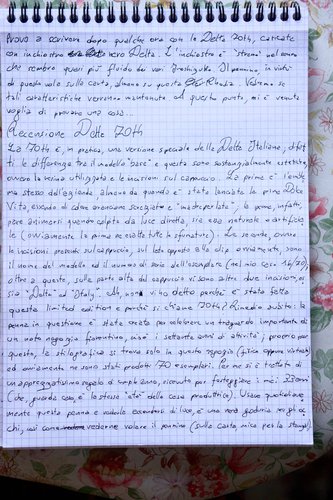 Provo a scrivere dopo qualche ora con la Delta 70th, caricata
con inchiostro nero Delta. L'inchiostro è "strano" nel senso
che sembra quasi più fluido dei vari Iroshizuku. Il pennino, in virtù
di questo vola sulla carta, almeno su questa Rhodia. Vedremo se
tali caratteristiche verranno mantenute. A questo punto, mi è venuta
voglia di provare una cosa...
Recensione Delta 70th
La 70th è, in pratica, una versione speciale della Dolce Italiana, difat
ti le differenze tra il modello "base" e questa sono sostanzialmente estetiche,
ovvero la resina utilizzata e le incisioni sul cappuccio. La prima è
stessa dell'azienda almeno da quando è stata lanciata la prima Dolce
Vita, essendo di colore arancione screziato e "madreperlato",
pare animarsi quando colpita da luce diretta, sia essa naturale o artificia
le (ovviamente la prima ne esalta tutte le sfumature). Le seconde, ovvero
le incisioni presenti sul cappuccio, sul lato opposto alla clip ovviamente, sono
il nome del modello ed il numero di serie dell'esemplare (nel mio caso 16/70),
oltre a queste, sulla parte alta del cappuccio vi sono altre due incisioni, os
sia "Delta" ed "Italy". Ah, non vi ho detto perché è stata fatta
questa limited edition e perché si chiama 70th? Rimedio subito: la
penna in questione è stata creata per celebrare un traguardo importante di
un noto negozio fiorentino, ossia i settanta anni di attività; proprio per
questo, la stilografica si trova solo in questo negozio (fisico oppure virtuale)
ed ovviamente ne sono stati prodotti 70 esemplari. Per me si è trattato di
un apprezzatissimo regalo di compleanno, ricevuto per festeggiare i miei
(che, guarda caso, è la stessa "età" della casa produttrice). Usare quotidiana
mente questa penna e vederla accendersi di luce, è una vera goduria per gli oc
chi, così come vederne volare il pennino (sulla carta, mica per la stanza!).